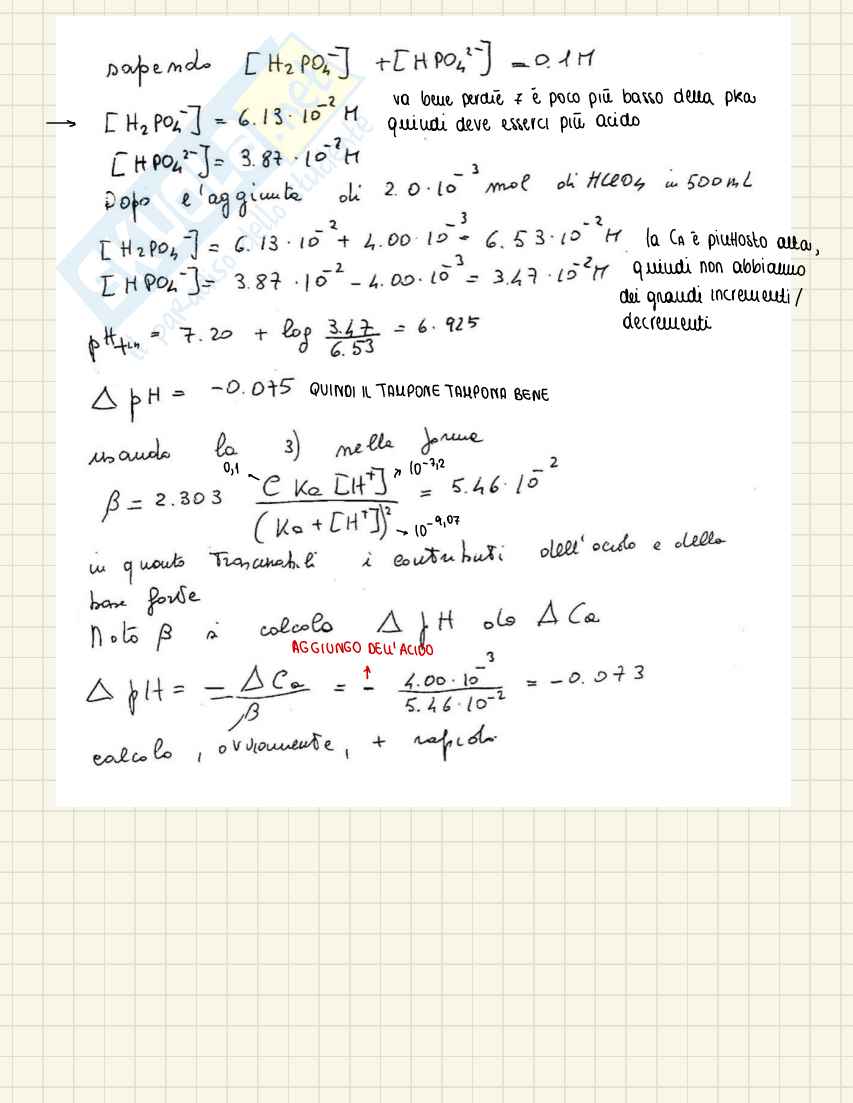 sapendo [H₂PO₄⁻] + [HPO₄²⁻] = 0.1M
→ [H₂PO₄⁻] = 6.13·10⁻² M
va bene perchè 7 è poco più basso della pka
quindi deve esserci più acido
[HPO₄²⁻] = 3.87·10⁻² M
Dopo l'aggiunta di 2.0·10⁻³ mol di HClO₄ in 500 mL
[H₂PO₄⁻] = 6.13·10⁻² + 4.00·10⁻³ = 6.53·10⁻² M
[HPO₄⁻] = 3.87·10⁻² - 4.00·10⁻³ = 3.47·10⁻² M
la CA è piuttosto alta,
quindi non abbiamo
dei grandi incrementi/
decrementi
pH fin = 7.20 + log 3.47/6.53 = 6.925
Δ pH = -0.075 QUINDI IL TAMPONE TAMPONA BENE
usando la 3) nella forma
0,1 10⁻⁷,²
β = 2.303 C Ka [H⁺] / (Ka + [H⁺])² = 5.46·10⁻²
→ 10⁻⁹,⁰⁷
in quanto trascurabili i contributi dell'acido e della
base forte
Noto β si calcola Δ pH da Δ Ca
AGGIUNGO DELL'ACIDO
Δ pH = - Δ Ca / β = - 4.00·10⁻³ / 5.46·10⁻² = -0.073
calcolo, ovviamente, + rapido.
SKUOLA.net
il paradiso dello studente